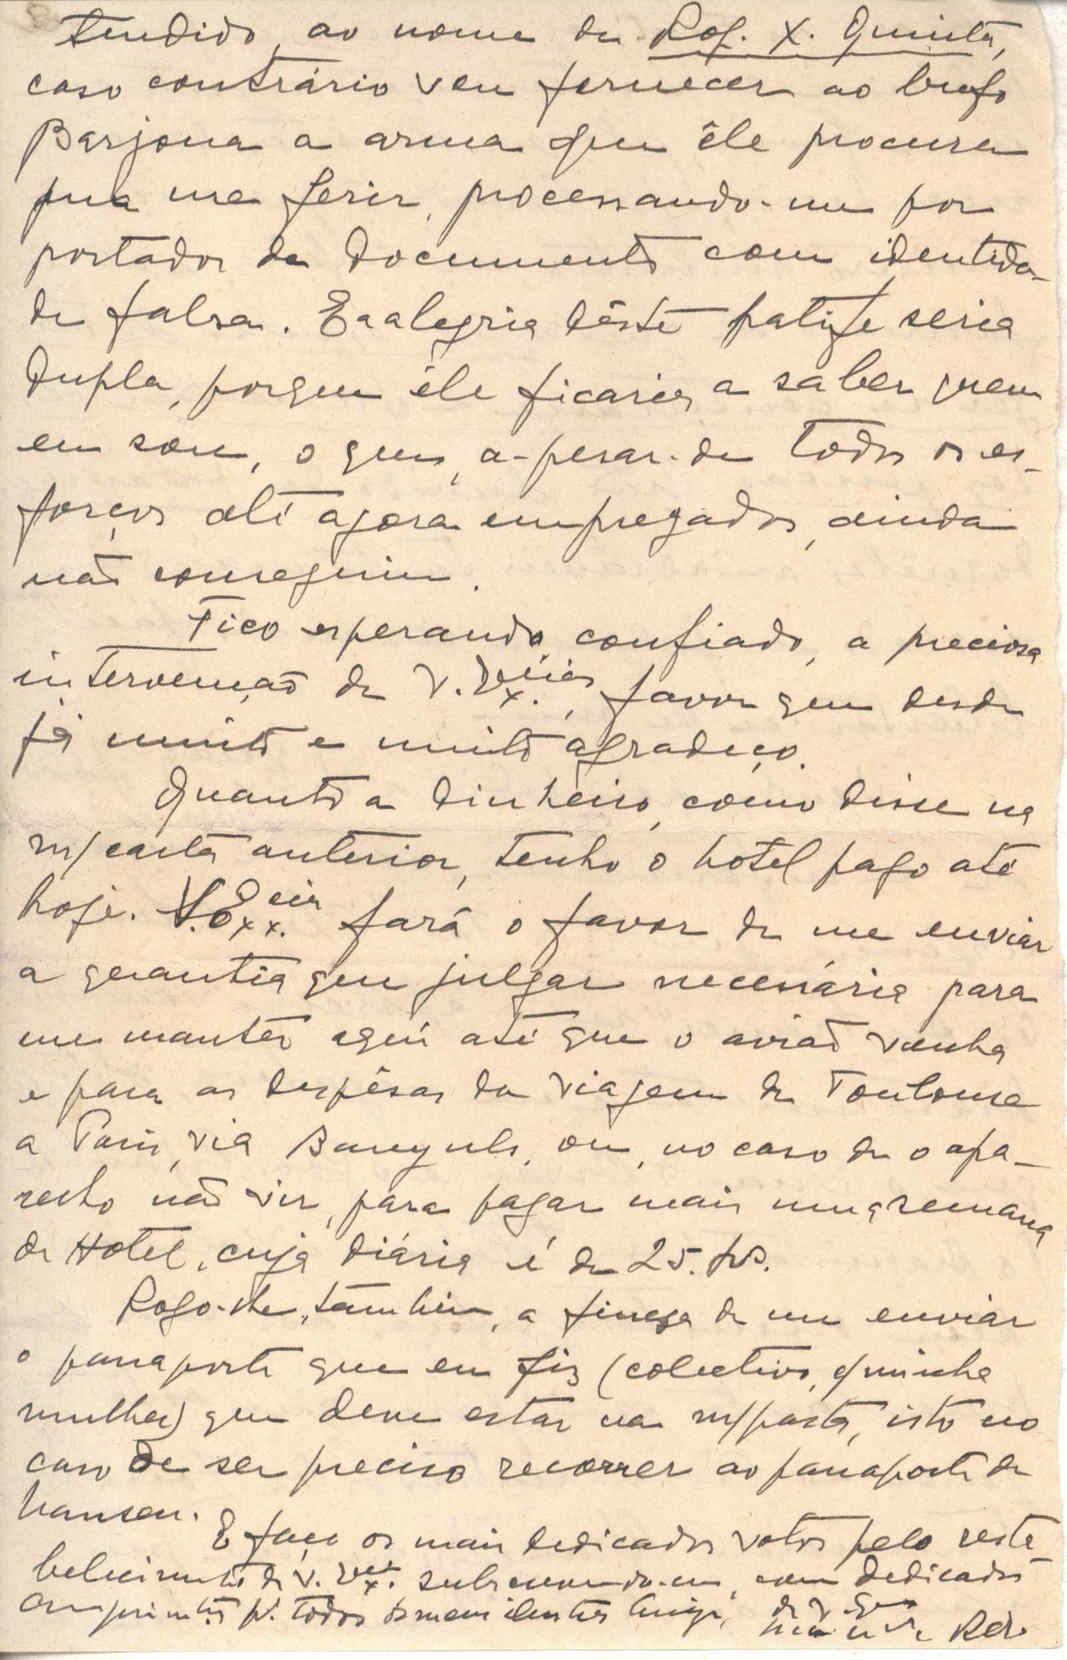 tendido, ao nome de Rog. X. Quintã,
caso contrário vou fornecer ao bufo
Barjona a arma que êle procura
para me ferir, processando-me por
portador de documento com identida-
de falsa. E a alegria dêste patife seria
dupla, porque êle ficaria a saber quem
eu sou, o que, a-pesar-de todos os es-
forços até agora empregados, ainda
não conseguiu.
Fico esperando, confiado, a preciosa
intervenção de V. Excia., favor que desde
já muito e muito agradeço.
Quanto a dinheiro, como disse na
m/ carta anterior, tenho o hotel pago até
hoje. V. Excia. fará o favor de me enviar
a quantia que julgar necessária para
me manter aqui até que o avião venha
e para as despêsas da viagem de Toulouse
a Paris, via Banyuls, ou, no caso de o apa-
relho não vir, para pagar mais uma semana
de Hotel, cuja diária é de 25. frs.
Rogo-lhe, também, a fineza de me enviar
o passaporte que eu fiz (colectivo, c/ minha
mulher) que deve estar na m/ pasta, isto no
caso de ser preciso recorrer ao passaporte de
Nansen.
E faço os mais dedicados votos pelo resta
belecimento de V. Excia. subscrevendo-me, com dedicados
cumprimentos p.ª todos os meus ilustres Amigos, de V. Excia